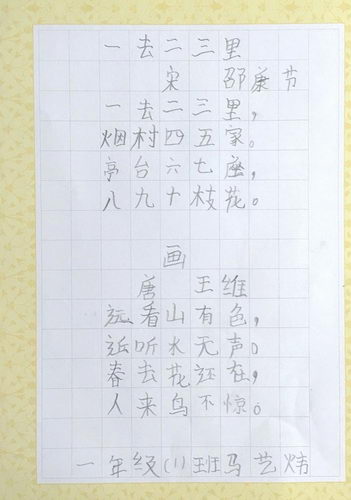 一去二三里
宋 邵康节
一去二三里，
烟村四五家。
亭台六七座，
八九十枝花。
画
唐 王维
远看山有色，
近听水无声。
春去花还在，
人来鸟不惊。
一年级(1)班马艺炜